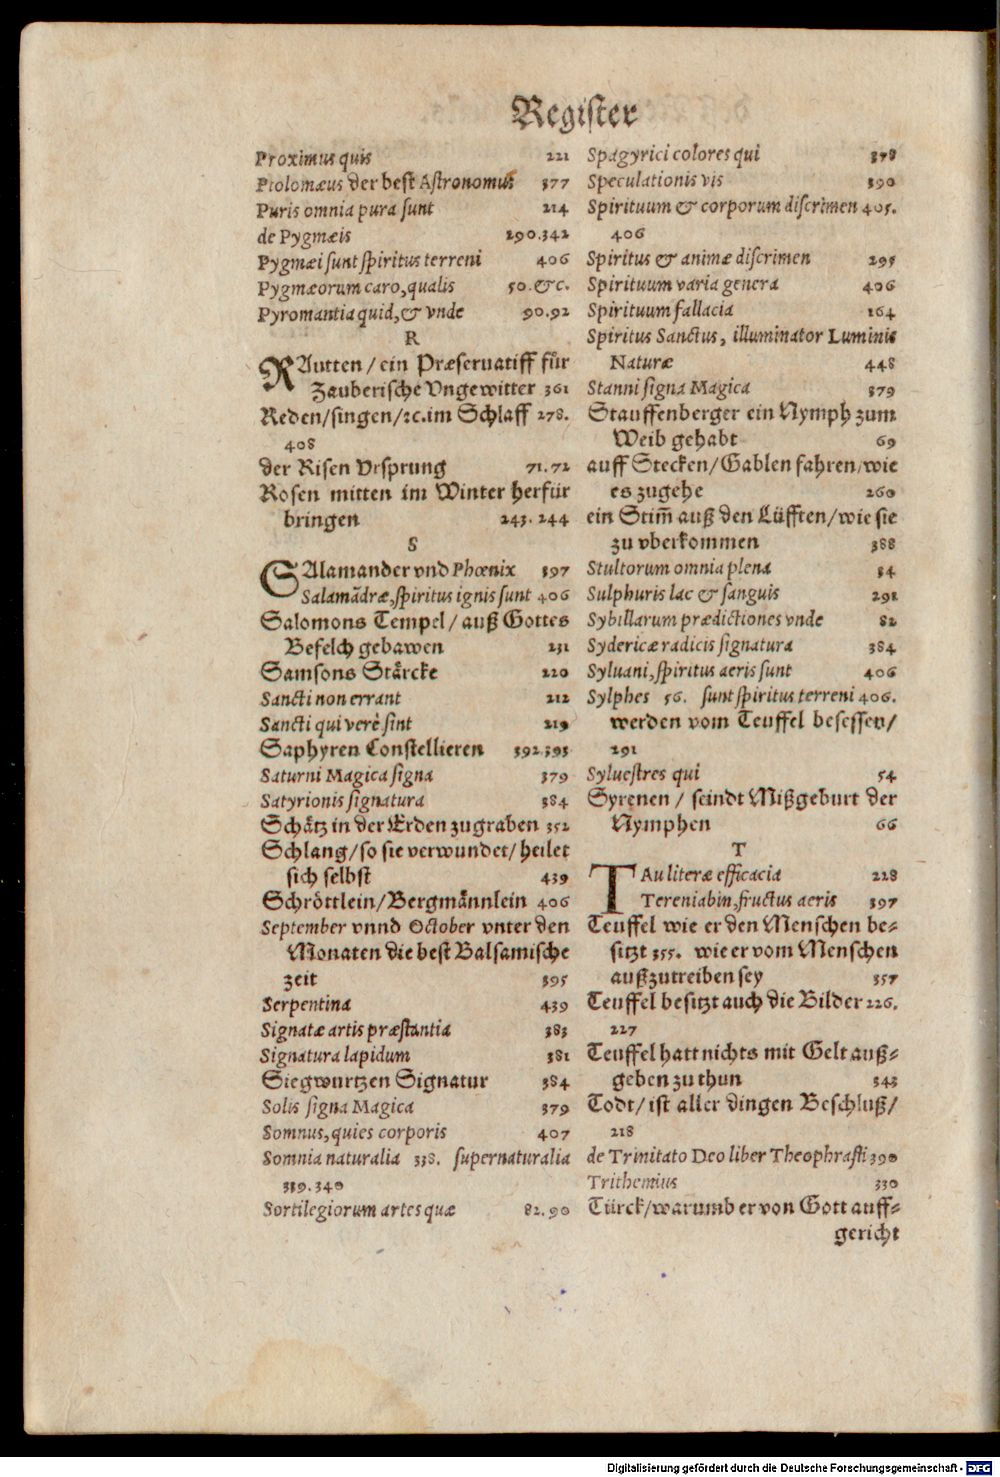 Register
Proximus quis 221
Ptolomæus der best Astronomus 377
Puris omnia pura sunt 214
de Pygmæis 290.342
Pygmæi sunt spiritus terreni 406
Pygmæorum caro, qualis 50.&c.
Pyromantia quid, & vnde 90.92
R
RAutten / ein Præseruatiff für
Zauberische Vngewitter 361
Reden/singen/ꝛc.im Schlaff 278.
408
der Risen Vrsprung 71.72
Rosen mitten im Winter herfür
bringen 243.244
S
SAlamander vnd Phœnix 397
Salamãdræ, spiritus ignis sunt 406
Salomons Tempel / auß Gottes
Befelch gebawen 231
Samsons Stärcke 220
Sancti non errant 212
Sancti qui verè sint 219
Saphyren Constellieren 392.393
Saturni Magica signa 379
Satyrionis signatura 384
Schätz in der Erden zugraben 352
Schlang/so sie verwundet/heilet
sich selbst 439
Schröttlein/Bergmännlein 406
September vnnd October vnter den
Monaten die best Balsamische
zeit 395
Serpentina 439
Signatæ artis præstantia 383
Signatura lapidum 381
Siegwurtzen Signatur 384
Solis signa Magica 379
Somnus, quies corporis 407
Somnia naturalia 338. supernaturalia
339.340
Sortilegiorum artes quæ 82.90
Spagyrici colores qui 378
Speculationis vis 390
Spirituum & corporum discrimen 405.
406
Spiritus & animæ discrimen 295
Spirituum varia genera 406
Spirituum fallacia 164
Spiritus Sanctus, illuminator Luminis
Naturæ 448
Stanni signa Magica 379
Stauffenberger ein Nymph zum
Weib gehabt 69
auff Stecken/Gablen fahren/wie
es zugehe 260
ein Stim̃ auß den Lüfften/wie sie
zu vberkommen 388
Stultorum omnia plena 34
Sulphuris lac & sanguis 292
Sybillarum prædictiones vnde 82
Sydericæ radicis signatura 384
Syluani, spiritus aeris sunt 406
Sylphes 56. sunt spiritus terreni 406.
werden vom Teuffel besessen/
291
Syluestres qui 54
Syrenen / seindt Mißgeburt der
Nymphen 66
T
TAu literæ efficacia 228
Tereniabin, fructus aeris 397
Teuffel wie er den Menschen be⸗
sitzt 355. wie er vom Menschen
außzutreiben sey 357
Teuffel besitzt auch die Bilder 226.
227
Teuffel hatt nichts mit Gelt auß⸗
geben zu thun 343
Todt/ist aller dingen Beschluß/
218
de Trinitato Deo liber Theophrasti 390
Trithemius 330
Türck/warumb er von Gott auff⸗
gericht
Digitalisierung gefördert durch die Deutsche Forschungsgemeinschaft - DFG